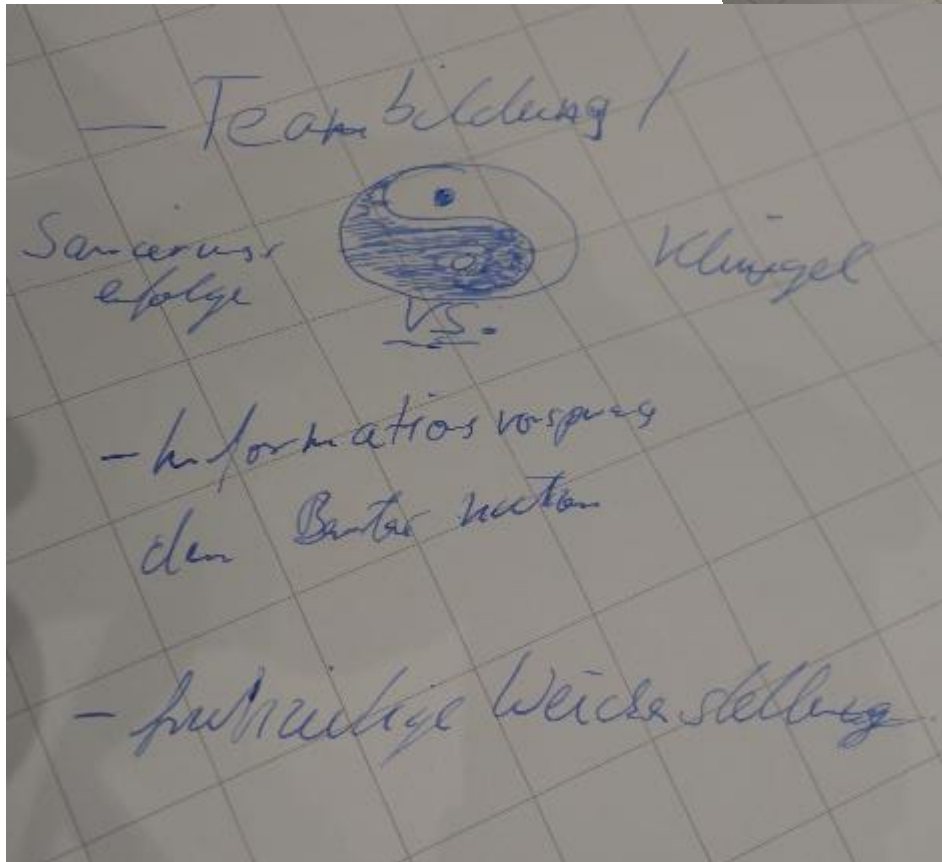 - Teambildung /
Sanierungs
erfolge
Klüngel
vs.
- Informationsvorsprung
der Berater nutzen
- frühzeitige Weichenstellung